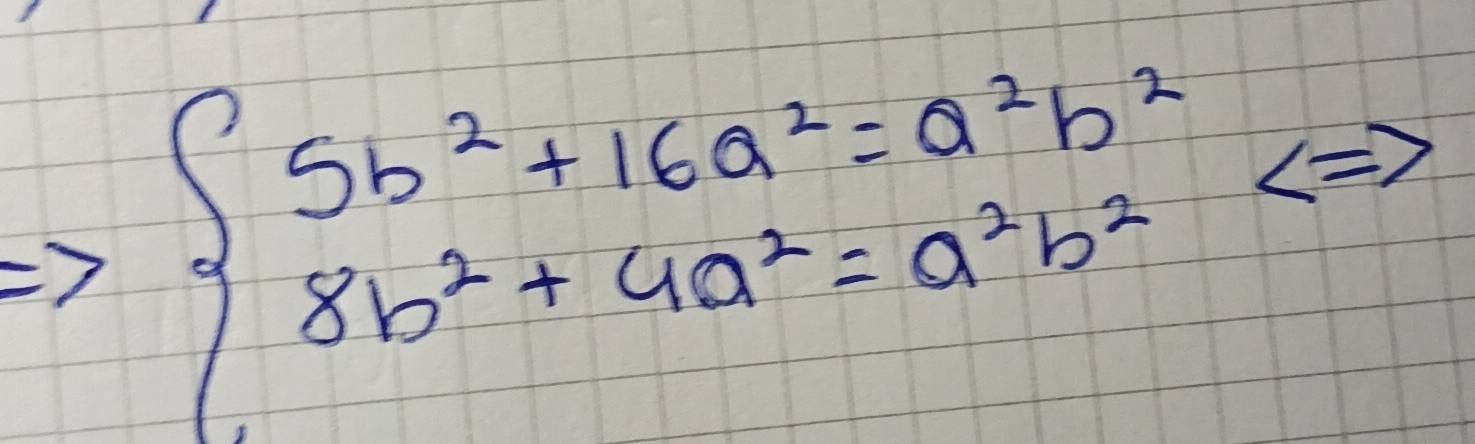 5b² + 16a² = a²b²
=> { <=>
8b² + 4a² = a²b²